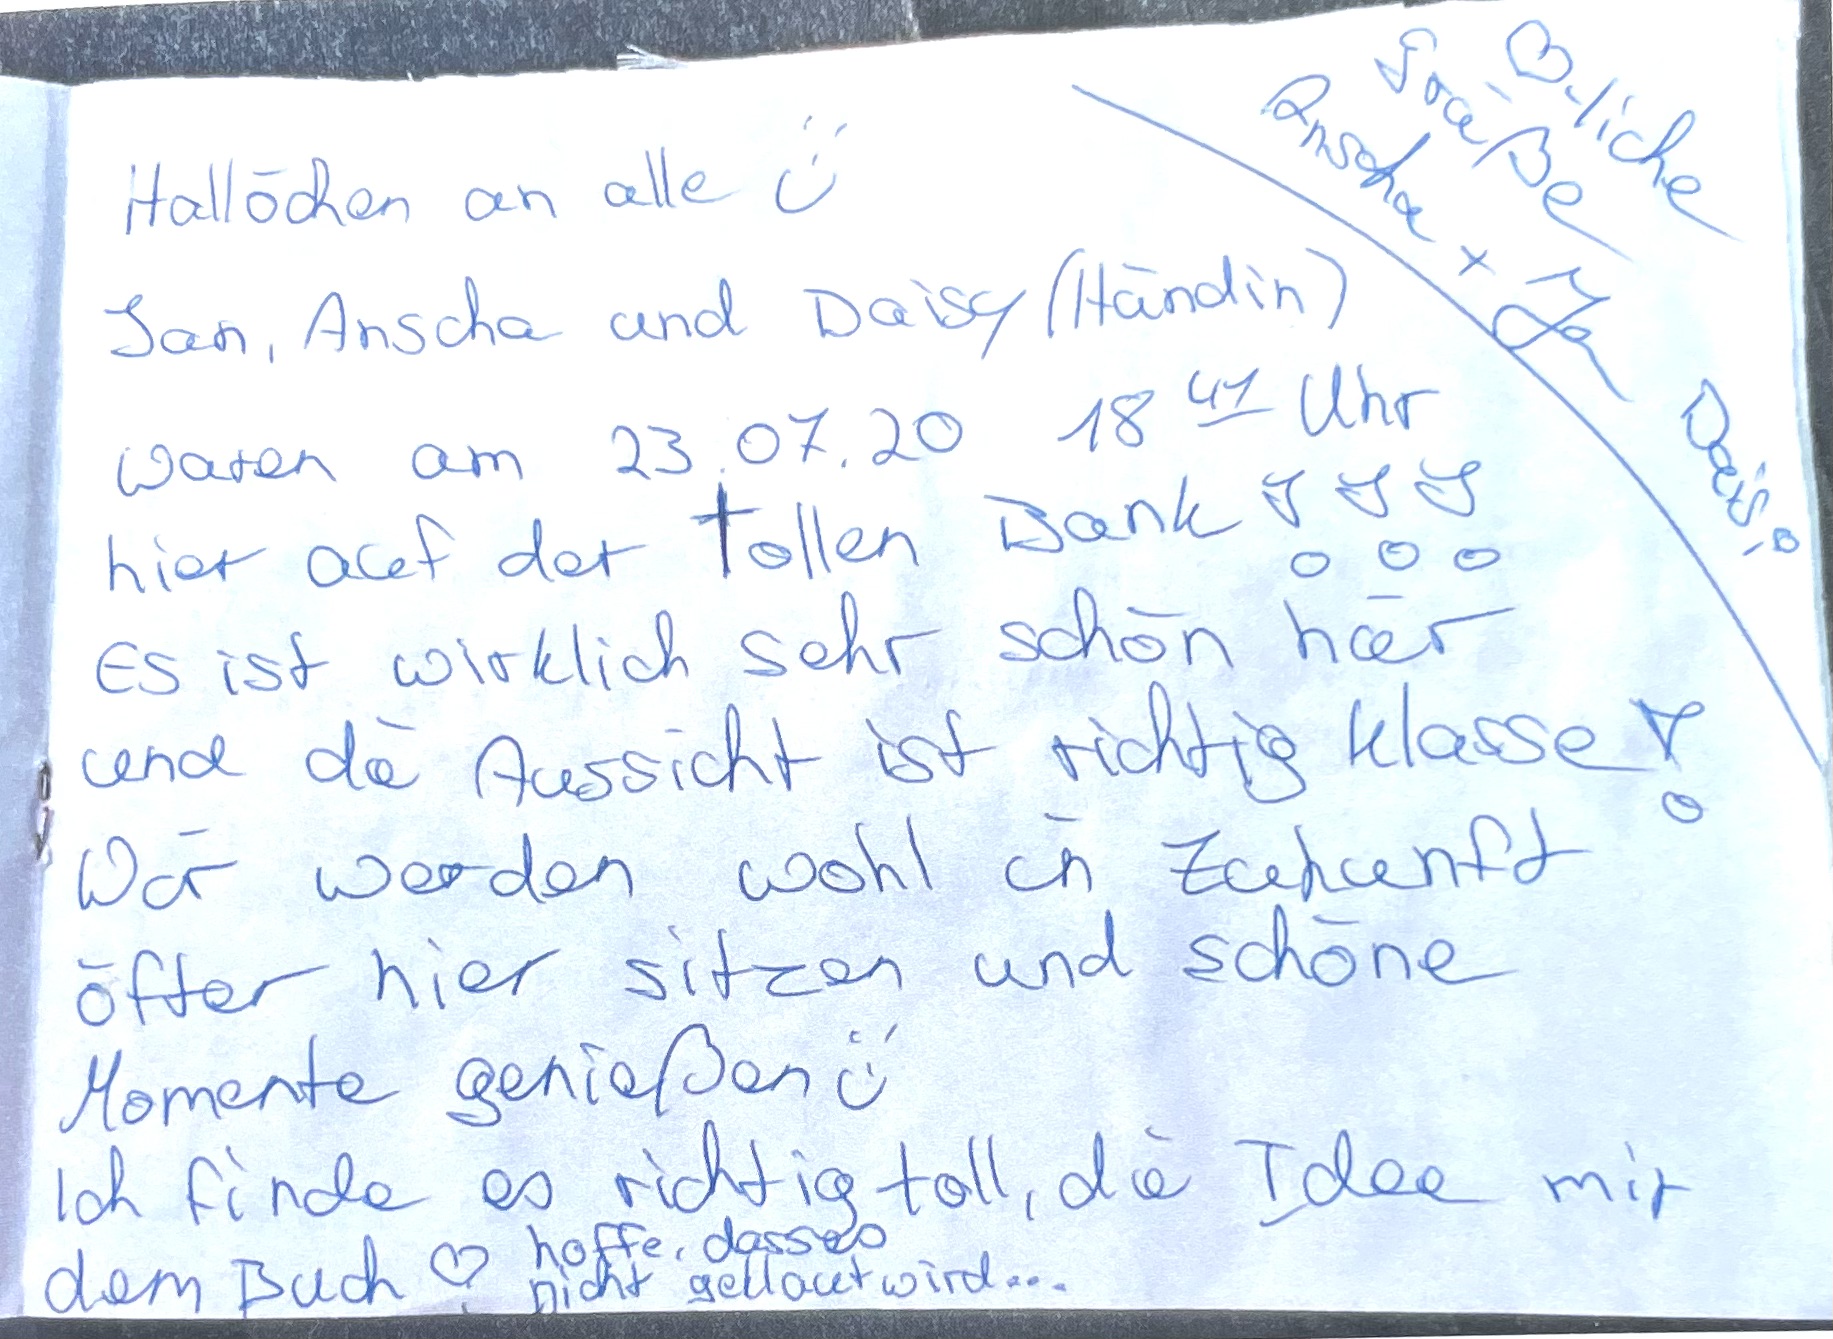 Hallöchen an alle
Jan, Anscha und Daisy (Hündin)
waren am 23.07.20 18 41 Uhr
hier auf der tollen Bank !!!
Es ist wirklich sehr schön hier
und die Aussicht ist richtig klasse!
Wir werden wohl in Zukunft
öfter hier sitzen und schöne
Momente genießen
Ich finde es richtig toll, die Idee mit
dem Buch ♡ hoffe, dass es
nicht geklaut wird...
♡-liche
Grüße
Anscha + Ja
Daisy